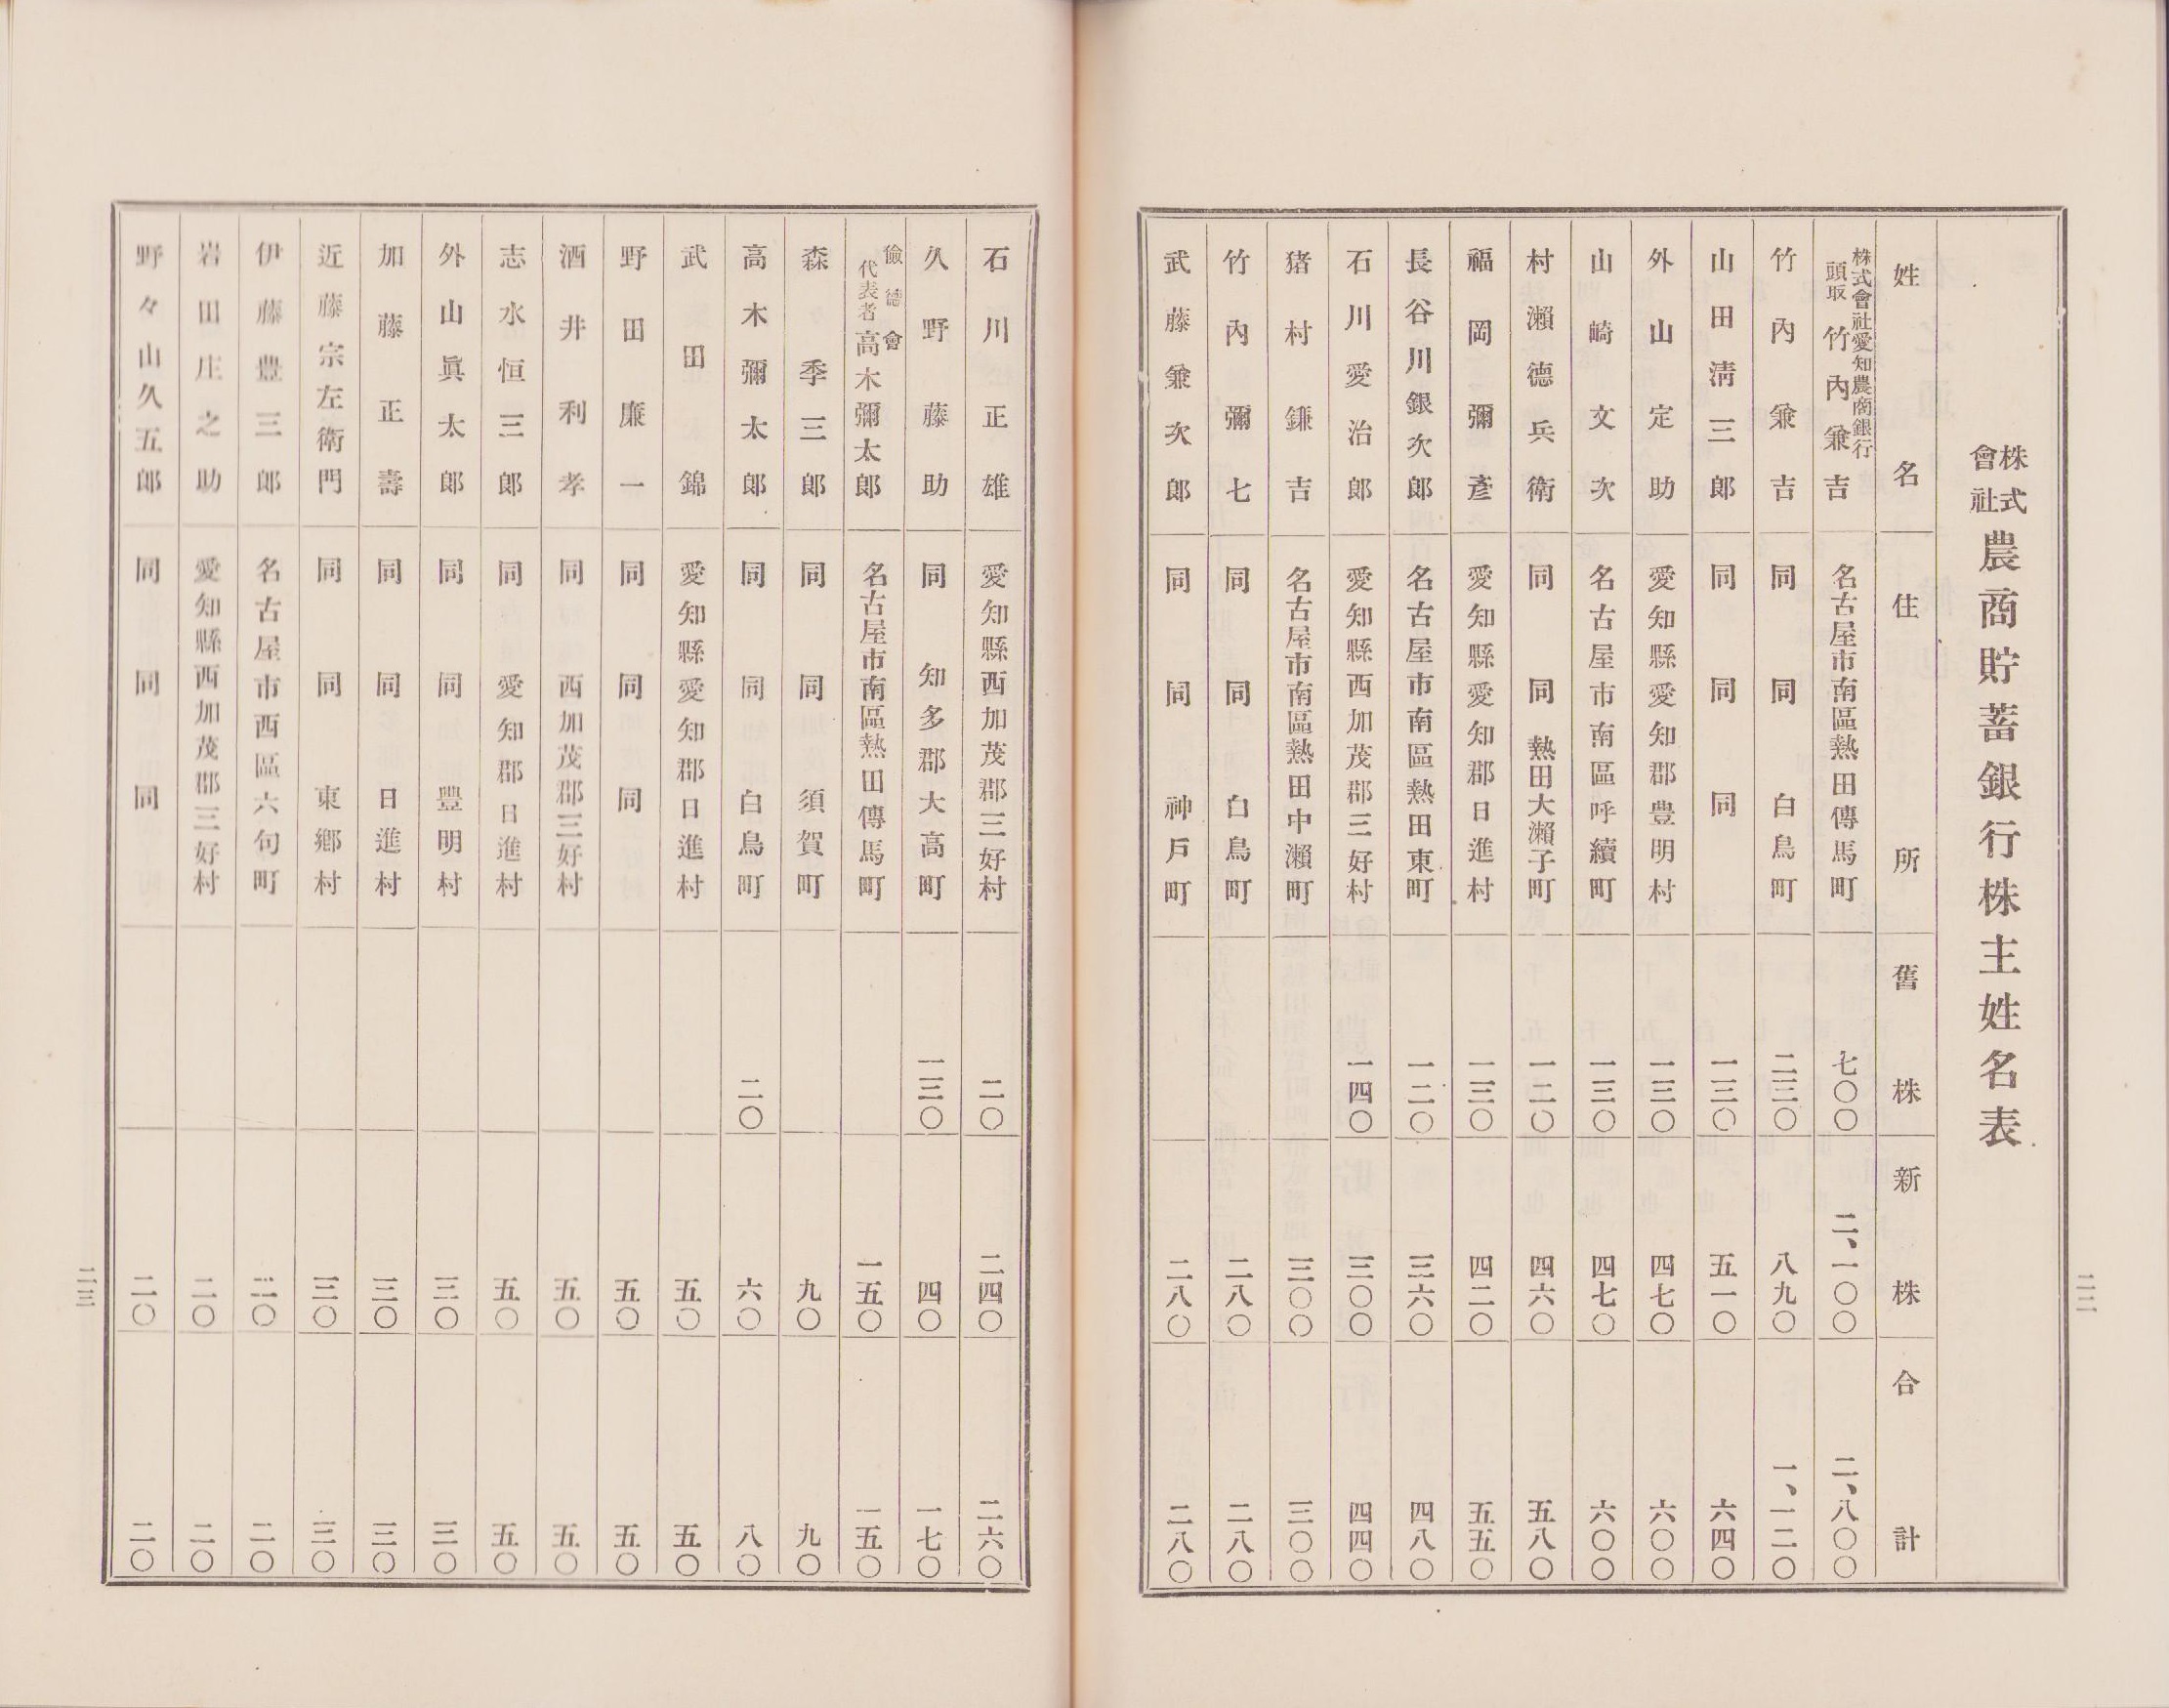 株式會社 農商貯蓄銀行株主姓名表
姓名 住所 舊株 新株 合計
株式會社愛知農商銀行 頭取 竹內兼吉 名古屋市南區熱田傳馬町 七〇〇 二、一〇〇 二、八〇〇
竹內兼吉 同 同 白鳥町 二三〇 八九〇 一、一二〇
山田淸三郎 同 同 同 一三〇 五一〇 六四〇
外山定助 愛知縣愛知郡豊明村 一三〇 四七〇 六〇〇
山崎文次 名古屋市南區呼續町 一三〇 四七〇 六〇〇
村瀨德兵衛 同 同 熱田大瀨子町 一二〇 四六〇 五八〇
福岡彌彥 愛知縣愛知郡日進村 一三〇 四二〇 五五〇
長谷川銀次郎 名古屋市南區熱田東町 一二〇 三六〇 四八〇
石川愛治郎 愛知縣西加茂郡三好村 一四〇 三〇〇 四四〇
猪村鎌吉 名古屋市南區熱田中瀨町 三〇〇 三〇〇
竹內彌七 同 同 白鳥町 二八〇 二八〇
武藤兼次郎 同 同 神戶町 二八〇 二八〇
二二
石川正雄 愛知縣西加茂郡三好村 二〇 二四〇 二六〇
久野藤助 同 知多郡大高町 一三〇 四〇 一七〇
儉德會 代表者 高木彌太郎 名古屋市南區熱田傳馬町 一五〇 一五〇
森季三郎 同 同 須賀町 九〇 九〇
高木彌太郎 同 同 白鳥町 二〇 六〇 八〇
武田錦 愛知縣愛知郡日進村 五〇 五〇
野田廉一 同 同 同 五〇 五〇
酒井利孝 同 西加茂郡三好村 五〇 五〇
志水恒三郎 同 愛知郡日進村 五〇 五〇
外山眞太郎 同 同 豊明村 三〇 三〇
加藤正壽 同 同 日進村 三〇 三〇
近藤宗左衛門 同 同 東鄕村 三〇 三〇
伊藤豊三郎 名古屋市西區六句町 二〇 二〇
岩田庄之助 愛知縣西加茂郡三好村 二〇 二〇
野々山久五郎 同 同 同 二〇 二〇
二三